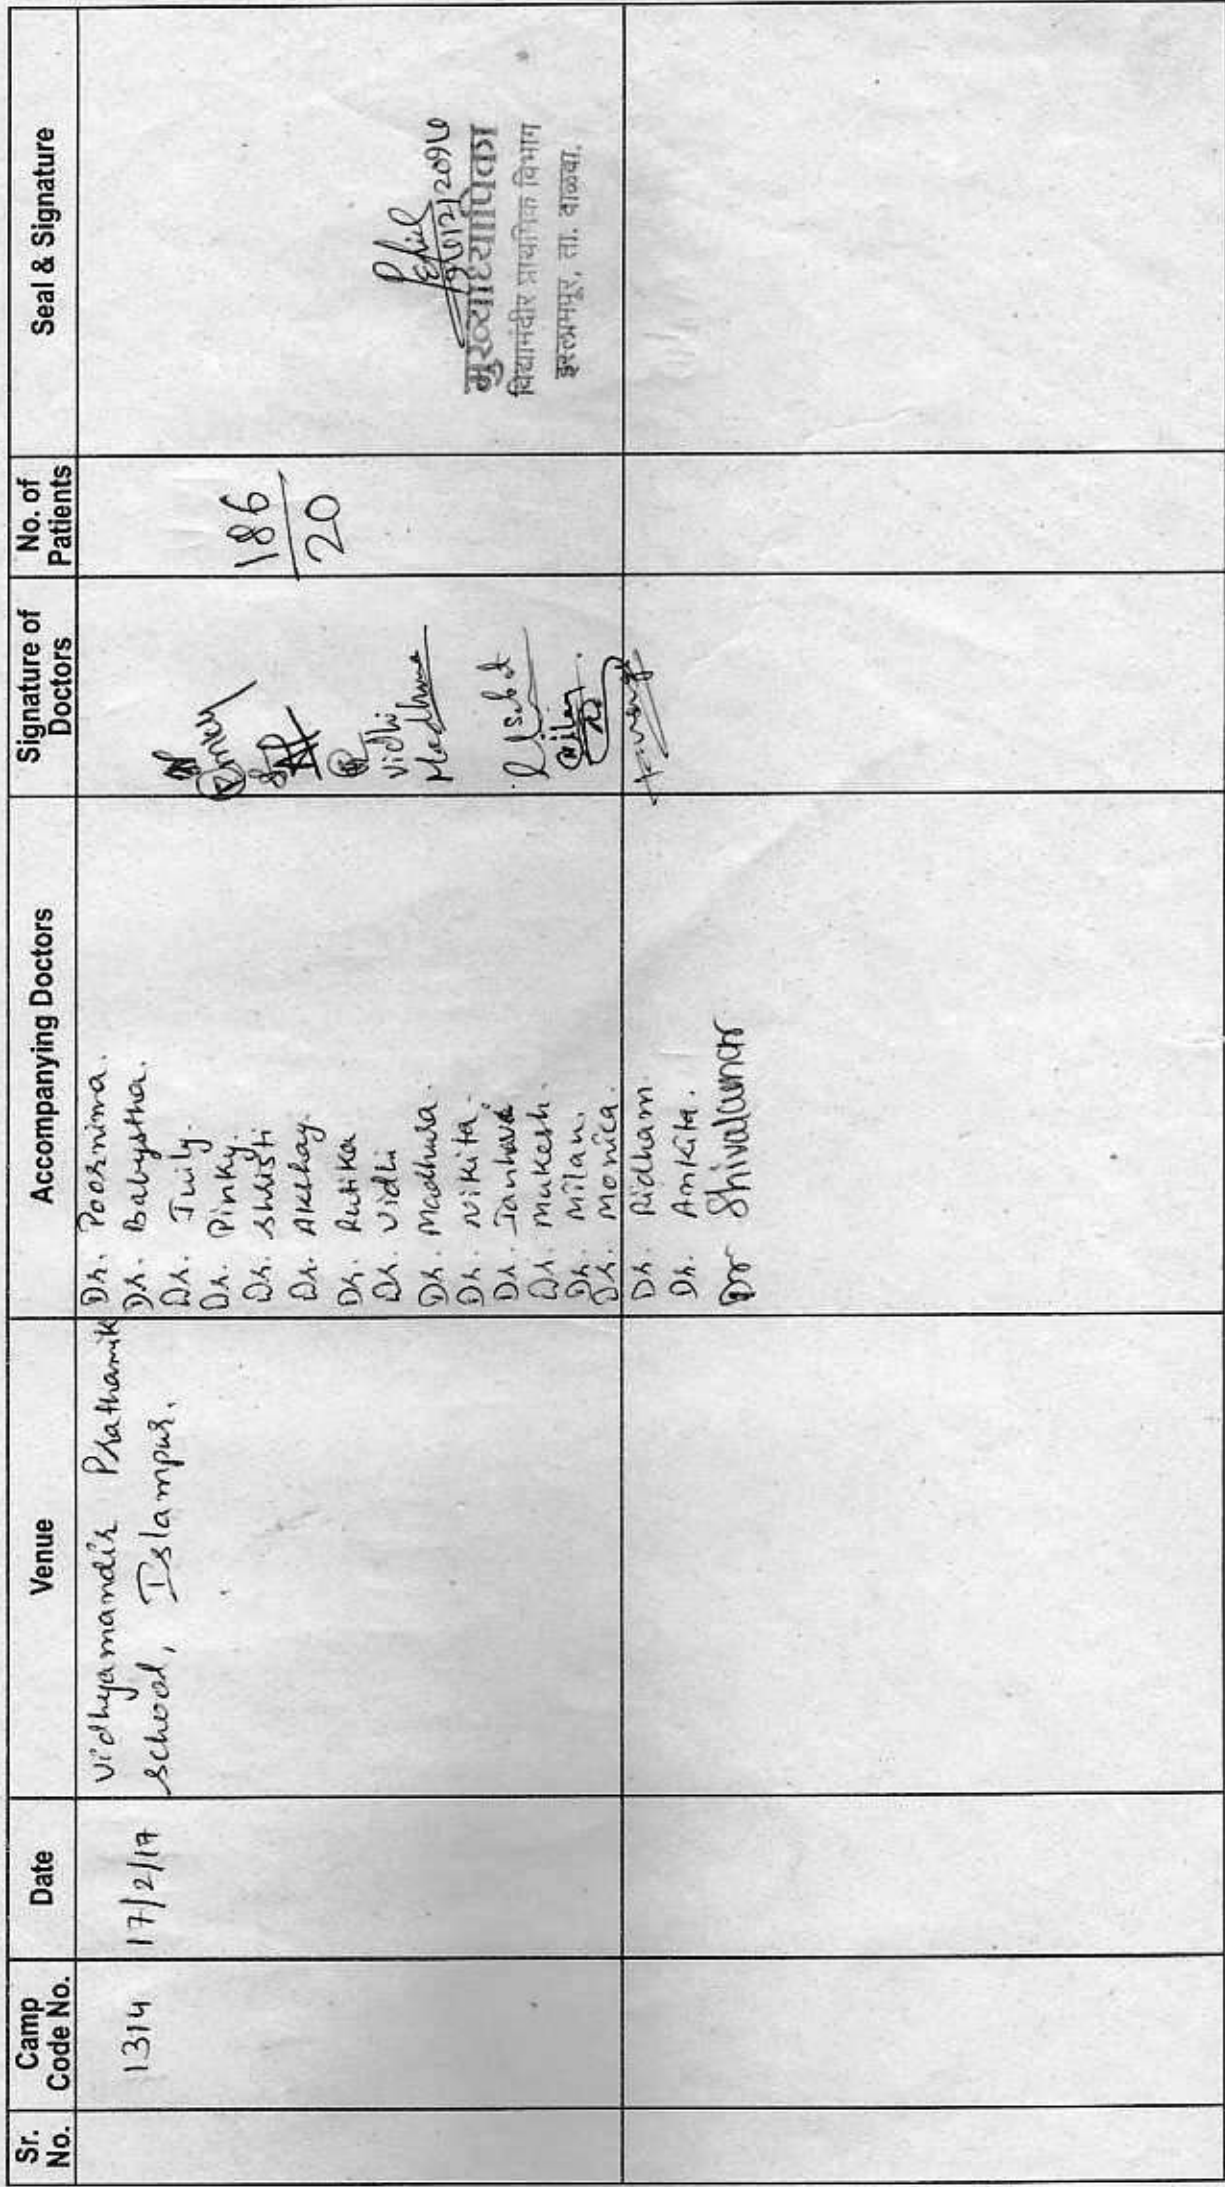 Sr. No.
Camp Code No.
Date
Venue
Accompanying Doctors
Signature of Doctors
No. of Patients
Seal & Signature
1314
17/2/17
Vidhyamandir Prathamik
School, Islampur.
Dr. Poornima.
Dr. Babystha.
Dr. Juily.
Dr. Pinky.
Dr. Shristi
Dr. Akshay.
Dr. Rutika
Dr. Vidhi
Dr. Madhura.
Dr. Nikita.
Dr. Janhavi
Dr. Mukesh.
Dr. Milan.
Dr. Monica.
Dr. Ridham
Dr. Ankita.
Dr Shivakumar
Pinky
Vidhi
Madhura
Milan
186
20
मुख्याध्यापिका
विद्यामंदीर प्राथमिक विभाग
इस्लामपूर, ता. वाळवा.